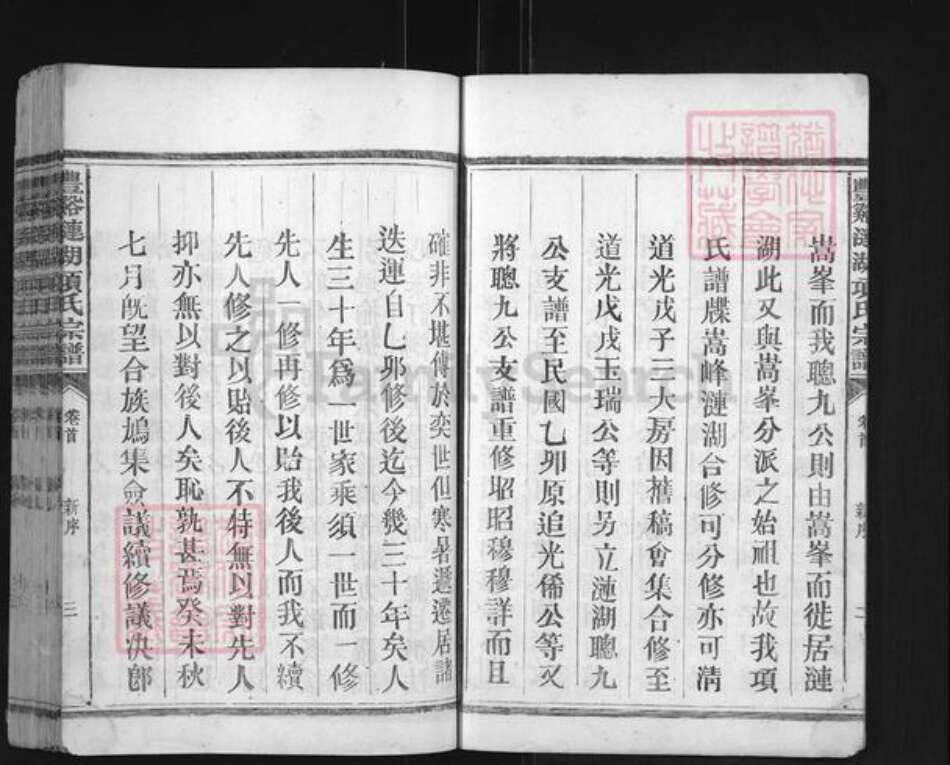 豐谿漣湖項氏宗譜
卷首
新序
二
嵩峯而我聰九公則由嵩峯而徙居漣
湖此又與嵩峯分派之始祖也故我項
氏譜牒嵩峰漣湖合修可分修亦可清
道光戊子三大房因舊稿會集合修至
道光戊戌玉瑞公等則另立漣湖聰九
公支譜至民國乙卯原追光俙公等又
將聰九公支譜重修昭昭穆穆詳而且
確非不堪傳於奕世但寒暑遞遷居諸
迭運自乙卯修後迄今幾三十年矣人
生三十年爲一世家乘須一世而一修
先人一修再修以貽我後人而我不續
先人修之以貽後人不特無以對先人
抑亦無以對後人矣恥孰甚焉癸未秋
七月既望合族鳩集僉議續修議決郎
豐谿漣湖項氏宗譜
卷首
新序
三
FamilySearch